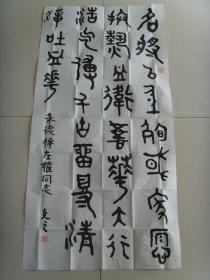 名將以身殉或家願
拚熱血衛吾華大行
浩气傳千古留得清
漳吐血華
朱德悼左權同志